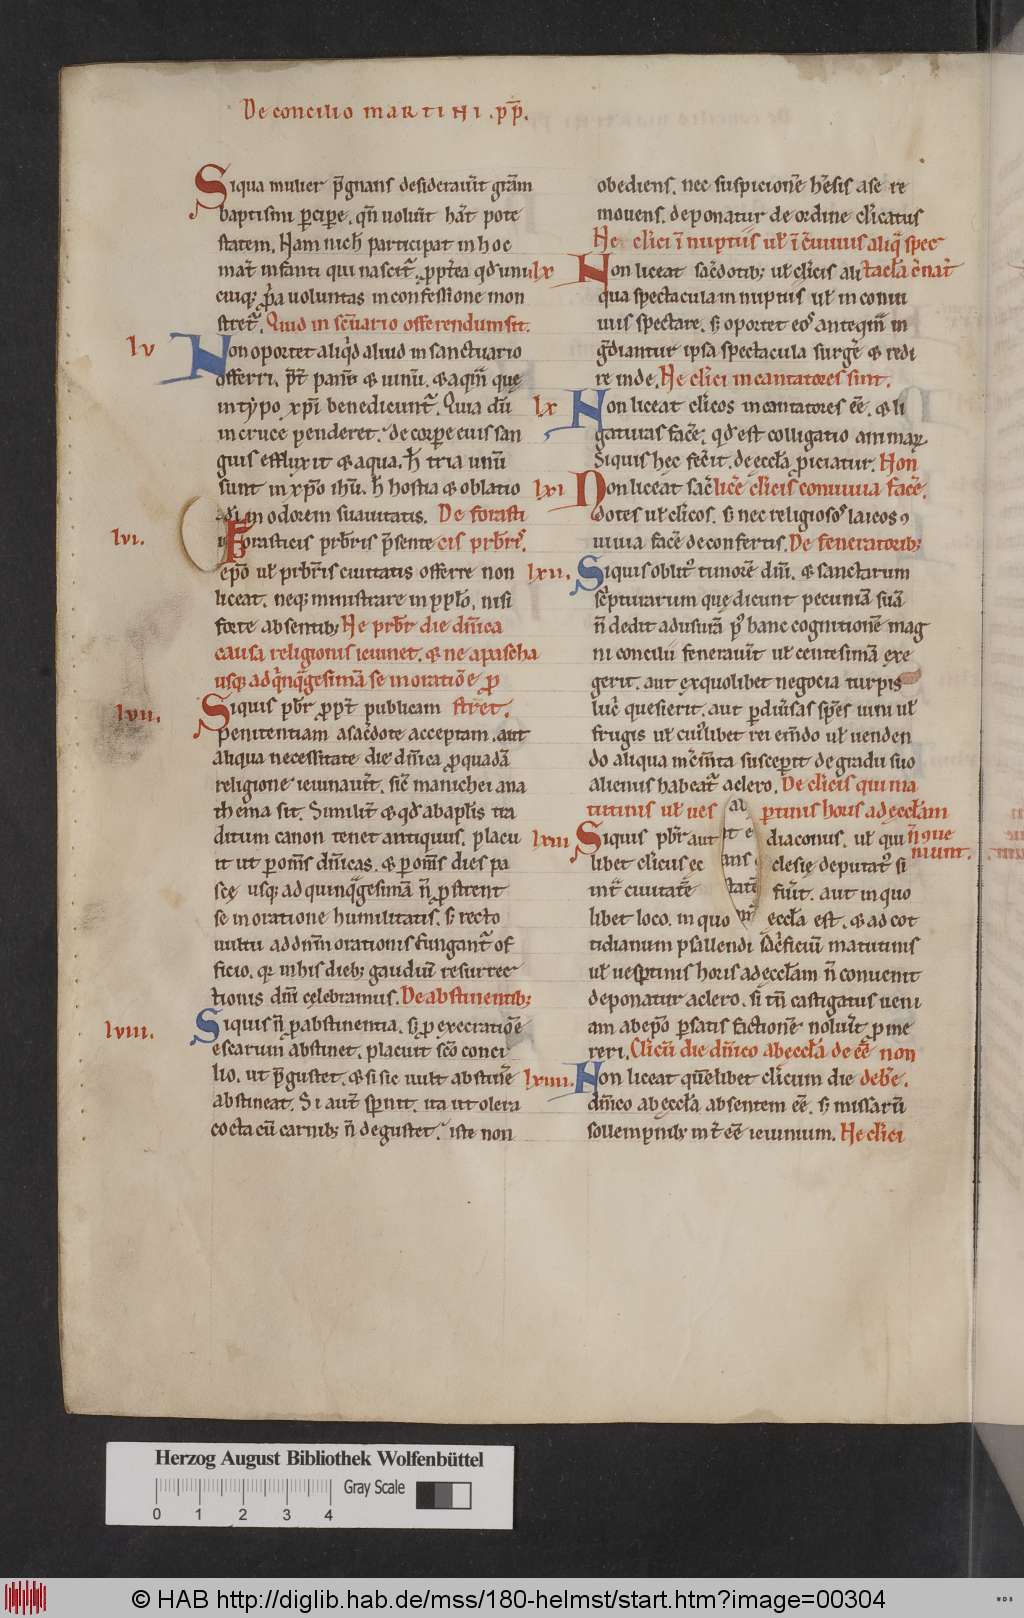 De concilio martini .pp̄.
Siqua mulier p̄gnans desiderauit̄ grām
baptismi pcipe. qn̄ uoluit̄ hāt pote
statem. Nam nich̄ participat in hoc
mat̄ infanti qui nascit̄. ppt̄ea qd̄ uni
cuiq; ppa uoluntas in confessione mon
stret̄. Quid in sc̄uario offerendum sit.
lv
Non oportet aliqd̄ aliud in sanctuario
offerri. pt̄ panē & uinū. & aquā que
in typo xp̄i benedicunt̄. Quia dū
in cruce penderet. de corpe eius san
guis effluxit & aqua. h̄ tria unū
sunt in xp̄o ih̄u. h̄ hostia & oblatio
di in odorem suauitatis. De forasti
lvi.
Forasticis prb̄ris p̄sente cis prb̄ris.
ep̄o ul̄ prb̄ris ciuitatis offerre non
liceat. neq; ministrare in pplo. nisi
forte absentib; Ne prb̄r die dn̄ica
causa religionis ieiunet. & ne a pascha
usq; ad qnqgesimā se in oratiōe p
lvii.
Siquis pb̄r ppt̄ publicam stret.
penitentiam a sac̄dote acceptam. aut
aliqua necessitate die dn̄ica p quadā
religione ieiunauit̄. sic̄ manichei ana
thema sit. Similit̄ & qd̄ ab aplis tra
ditum canon tenet antiquus. placu
it ut p om̄s dn̄icas. & p om̄s dies pa
sce usq; ad quinqgesimā n̄ pstrent
se in oratione humilitatis. s; recto
uultu ad dn̄m orationis fungant̄ of
ficio. qr in his dieb; gaudiū resurrec
tionis dn̄i celebramus. De abstinentib;
lviii.
Siquis n̄ p abstinentia. s; p execratiōe
escarum abstinet. placuit sc̄o conci
lio. ut p̄gustet. & si sic uult abstinē
abstineat. Si aut̄ spnit. ita ut olera
cocta cū carnib; n̄ degustet. iste non
obediens. nec suspicionē h̄esis a se re
mouens. deponatur de ordine cl̄icatus
Ne cl̄ici ī nuptiis ul̄ ī c̄uiuiis aliq̄ spec
lx
Non liceat sac̄dotib; ul̄ cl̄icis ali tacl̄a c̄nat̄
qua spectacula in nuptiis ul̄ in conui
uiis spectare. s; oportet eos anteqm̄ in
gdiantur ipsa spectacula surgē & redi
re inde. Ne cl̄ici incantatores sint.
lx
Non liceat cl̄icos incantatores eē. & li
gaturas facē. qd̄ est colligatio animar̄
Siquis hec fec̄it. de eccl̄a piciatur. Non
lxi
Non liceat sac̄ licē cl̄icis conuiuia facē.
dotes ul̄ cl̄icos. s; nec religiosos laicos 9
uiuia facē de confertis. De feneratorib;
lxii.
Siquis oblitus timorē dn̄i. & sanctarum
sc̄pturarum que dicunt pecuniā suā
n̄ dedit ad usurā p hanc cognitionē mag
ni concilii fenerauit̄ ul̄ centesimā exe
gerit. aut ex quolibet negocia turpis
luc̄ quesierit. aut p diuersas spēs uini ul̄
frugis ul̄ cuiuslibet rei emdo ul̄ uenden
do aliqua inc̄mta susceperit de gradu suo
alienus habeat̄ a clero. De cl̄icis qui ma
tutinis ul̄ ues ptinis horis ad eccl̄am
lxiii
Siquis pb̄r aut diaconus. ul̄ qui n̄ que
libet cl̄icus ec clesie deputatus si niunt.
int̄ ciuitatē fiut̄. aut in quo
libet loco. in quo eccl̄a est. & ad cot
tidianum psallendi sac̄ficiū matutinis
ul̄ uesptinis horis ad eccl̄am n̄ conuenit
deponatur a clero. si tn̄ castigatus ueni
am ab ep̄o p satisfactionē noluit̄ pme
reri. Cl̄icū die dn̄ico ab eccl̄a deeē non
lxiiii.
Non liceat quēlibet cl̄icum die debē.
dn̄ico ab eccl̄a absentem eē. s; missarū
sollempnib; int̄ee ieiunium. Ne cl̄ici
Herzog August Bibliothek Wolfenbüttel
Gray Scale
0 1 2 3 4
© HAB http://diglib.hab.de/mss/180-helmst/start.htm?image=00304